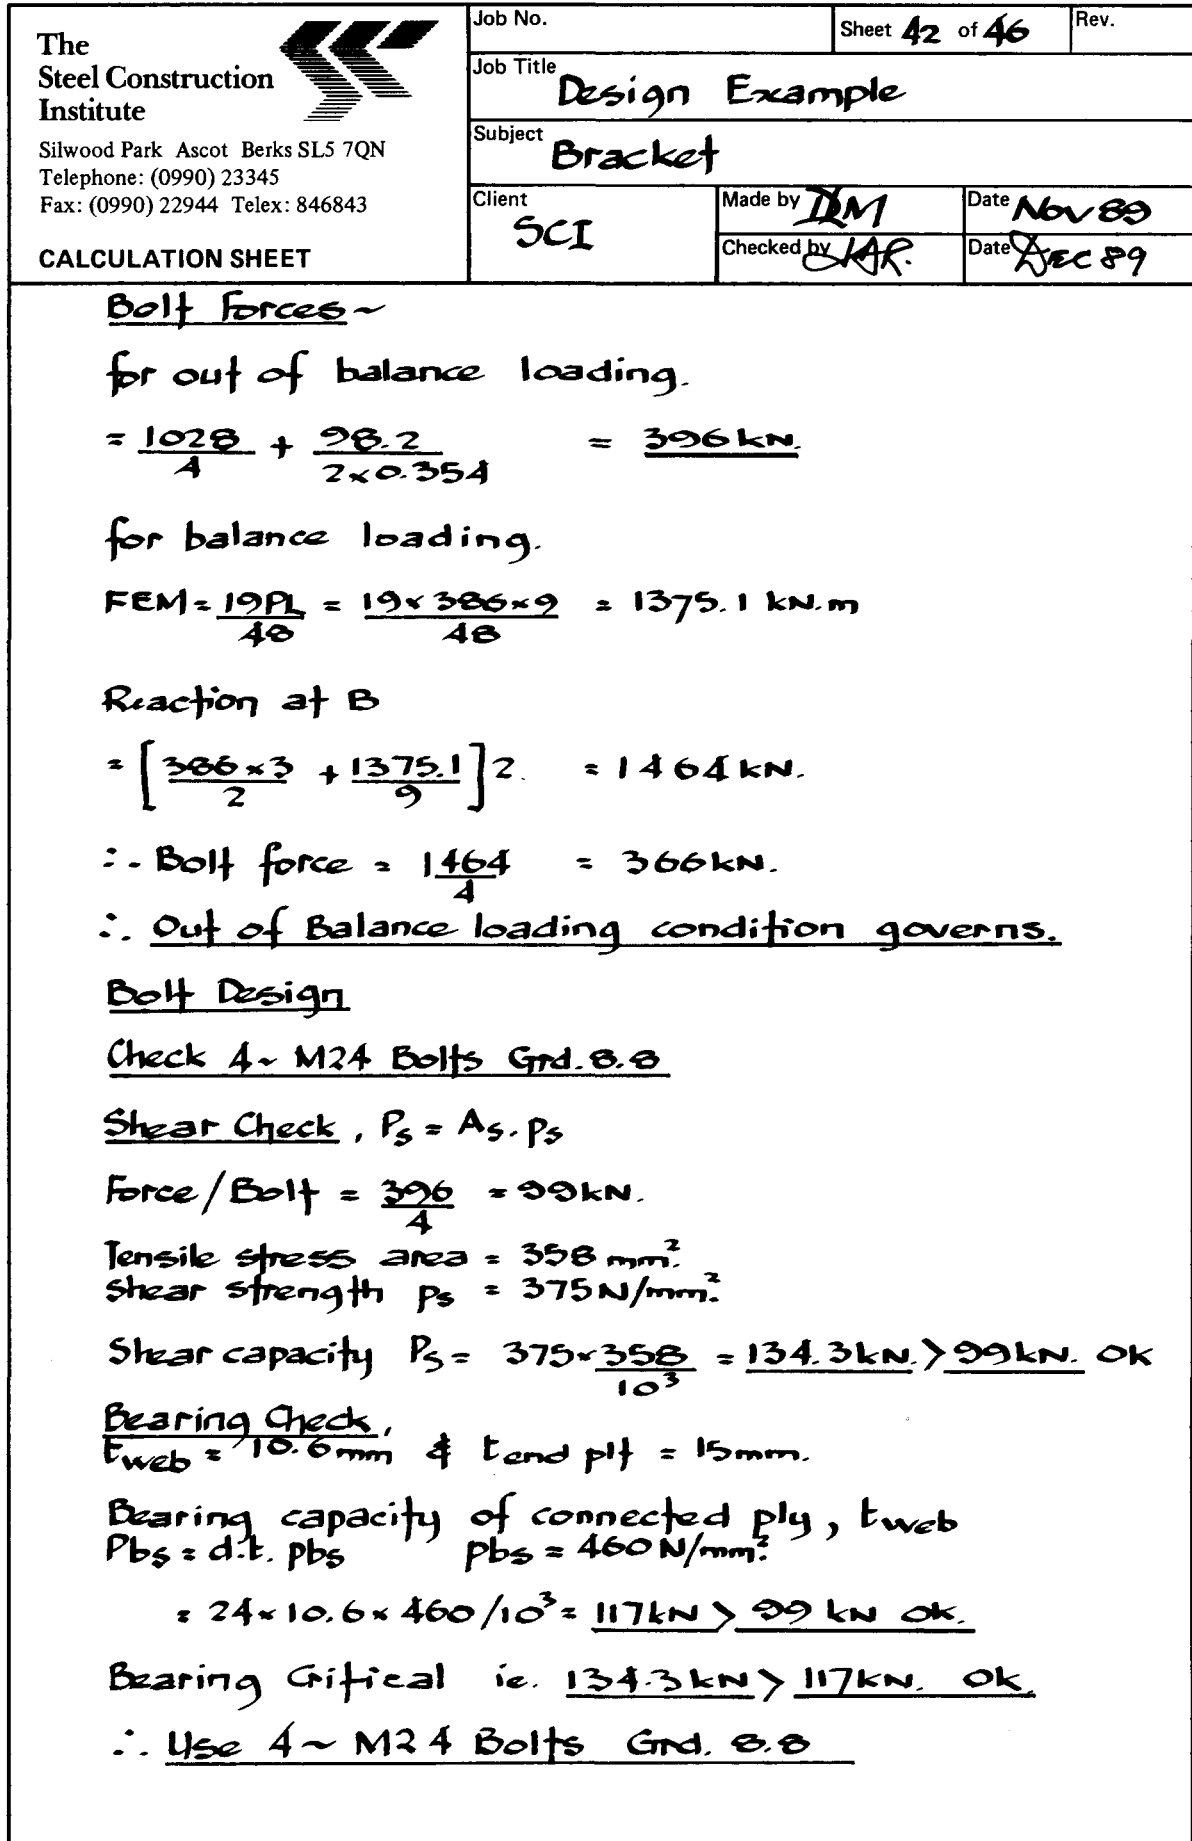 The
Steel Construction
Institute
Silwood Park Ascot Berks SL5 7QN
Telephone: (0990) 23345
Fax: (0990) 22944 Telex: 846843
CALCULATION SHEET
Job No.
Sheet 42 of 46
Rev.
Job Title Design Example
Subject Bracket
Client SCI
Made by DLM
Date Nov 89
Checked by
Date Dec 89
Bolt Forces ~
for out of balance loading.
= 1028/4 + 98.2/(2×0.354) = 396 kN.
for balance loading.
FEM = 19PL/48 = 19×386×9/48 = 1375.1 kN.m
Reaction at B
= [386×3/2 + 1375.1/9]2. = 1464 kN.
∴ Bolt force = 1464/4 = 366 kN.
∴ Out of Balance loading condition governs.
Bolt Design
Check 4~ M24 Bolts Grd. 8.8
Shear Check, Ps = As. ps
Force/Bolt = 396/4 = 99 kN.
Tensile stress area = 358 mm².
Shear strength ps = 375 N/mm².
Shear capacity Ps = 375×358/10³ = 134.3 kN. > 99 kN. OK
Bearing Check,
tweb = 10.6 mm & tend plt = 15mm.
Bearing capacity of connected ply, tweb
Pbs = d.t. pbs pbs = 460 N/mm².
= 24×10.6×460/10³ = 117 kN > 99 kN OK.
Bearing Critical ie. 134.3 kN > 117 kN. OK.
∴ Use 4~ M24 Bolts Grd. 8.8